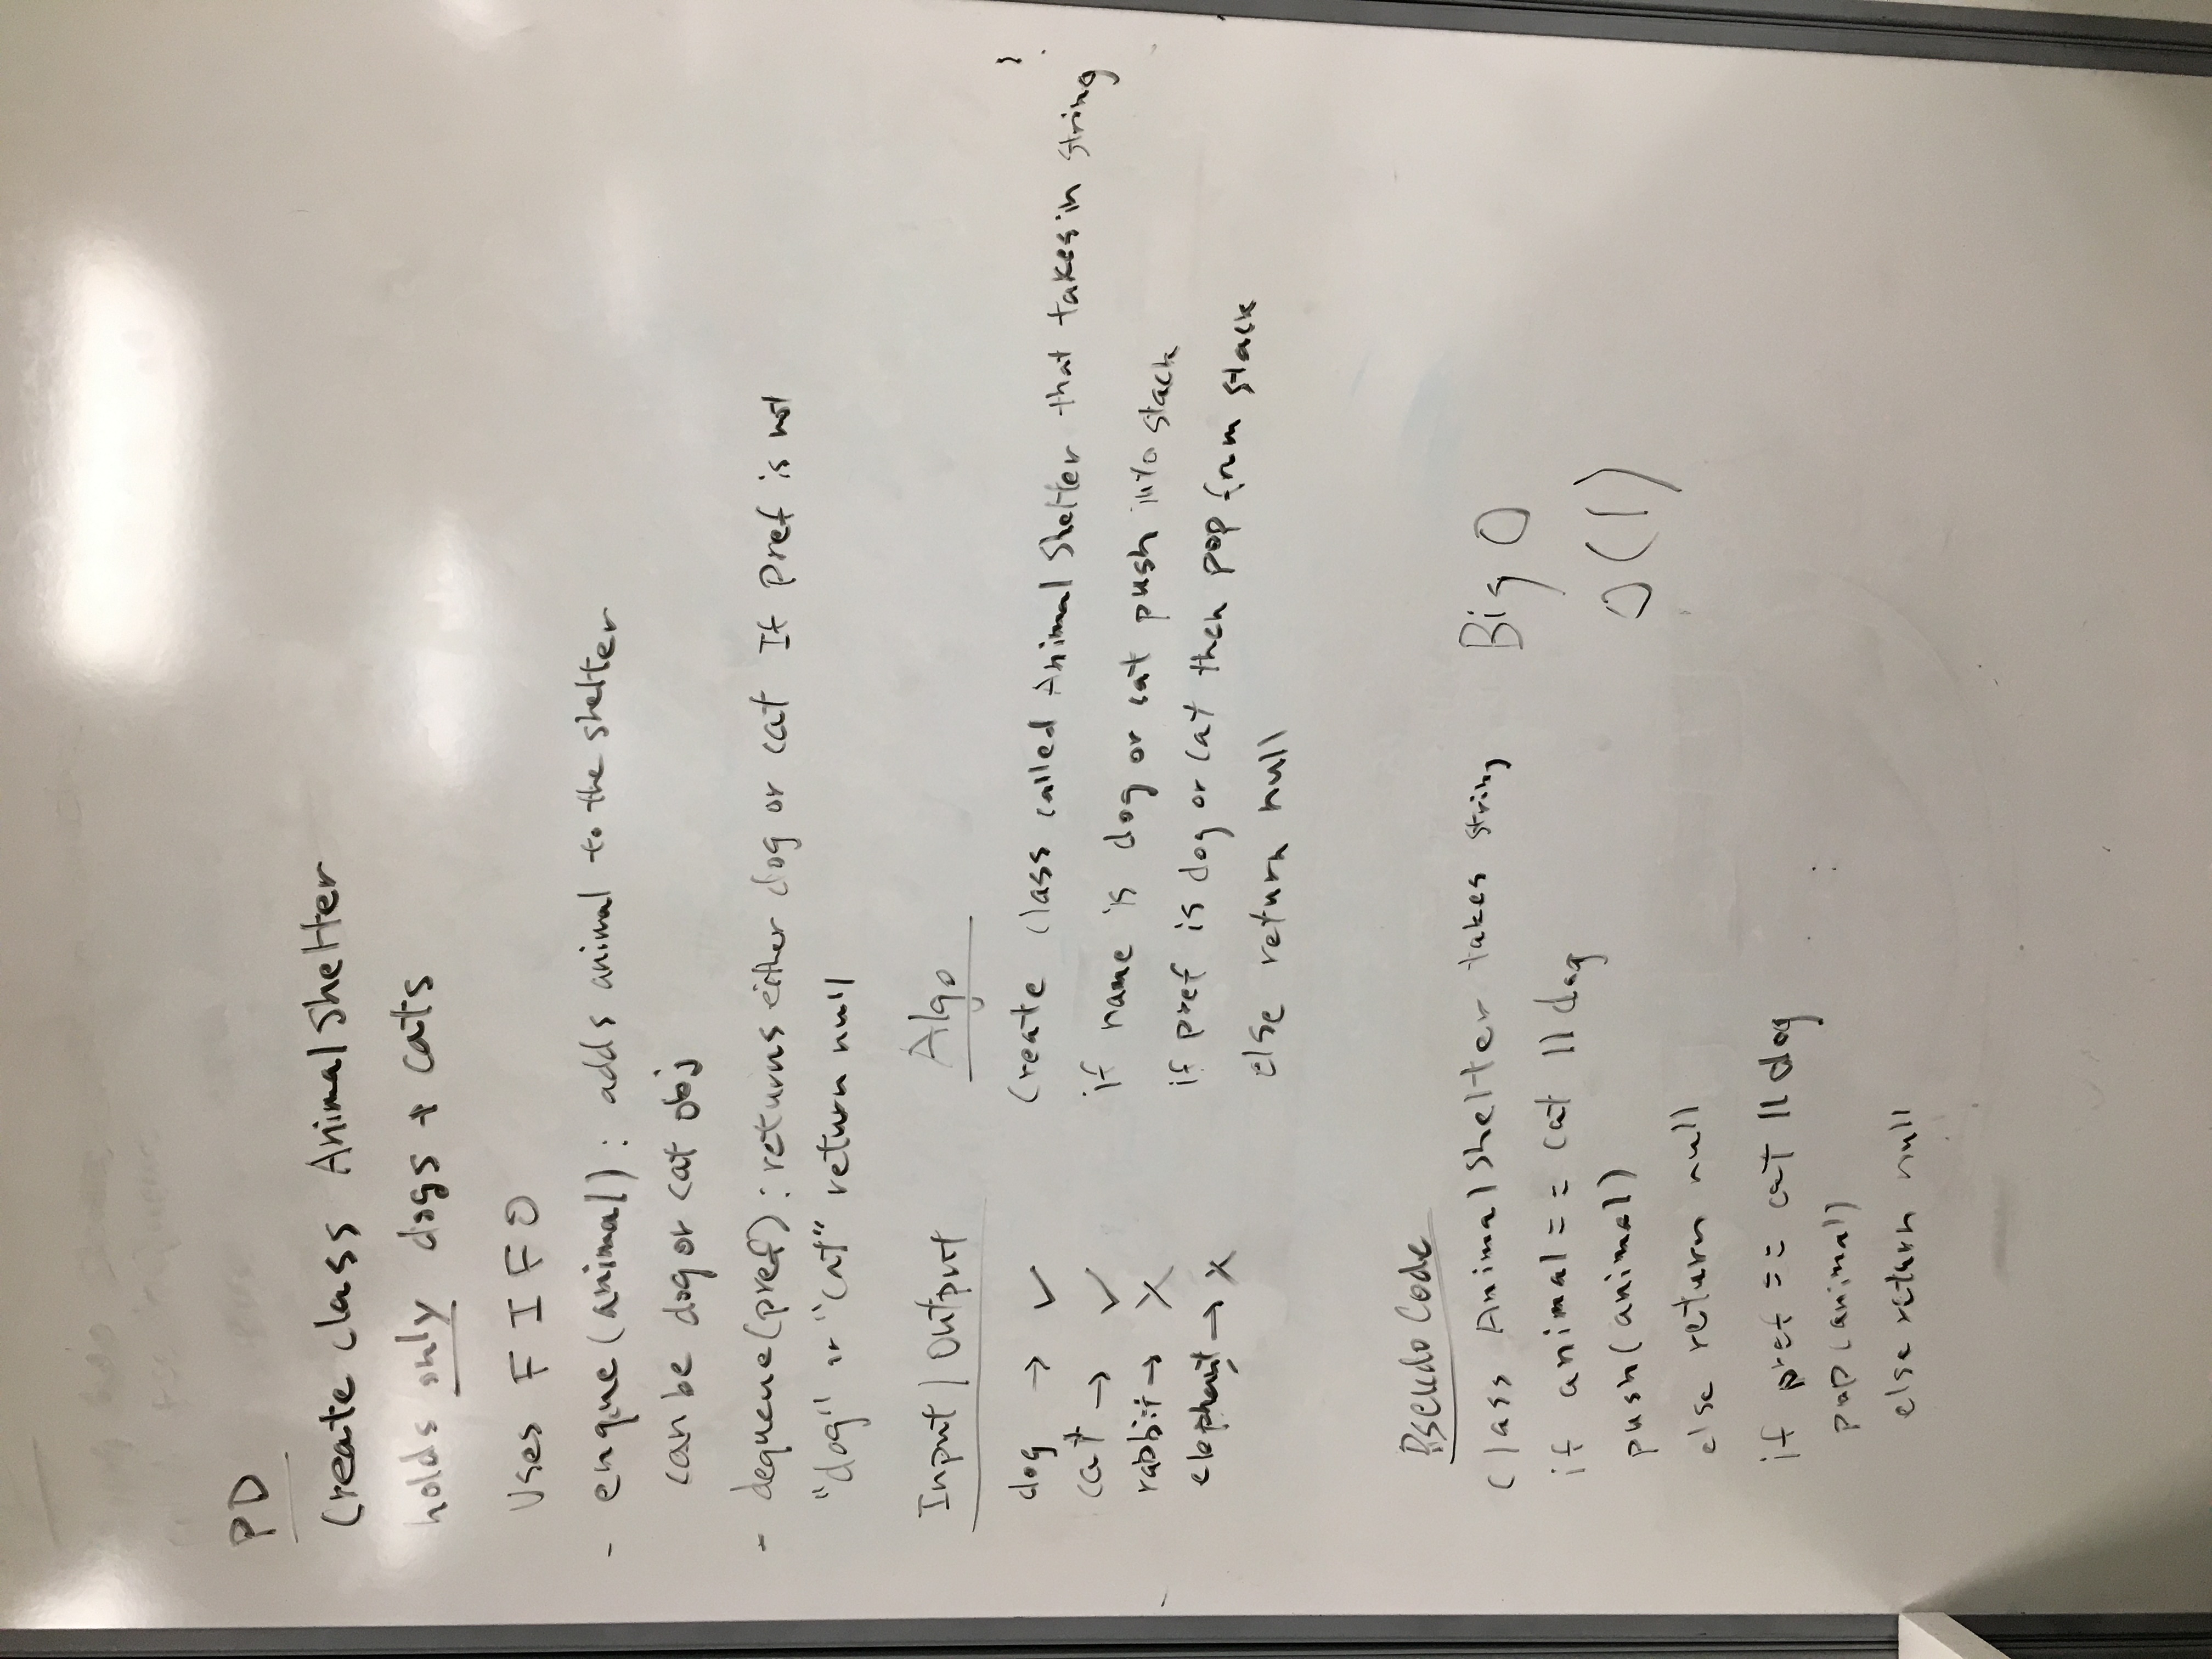 PD
Create class AnimalShelter
holds only dogs + cats
Uses FIFO
- enque(animal): adds animal to the shelter
can be dog or cat obj
- dequeue(pref): returns either dog or cat If pref is not
"dog" or "cat" return null
Input / Output
dog → ✓
cat → ✓
rabbit → X
elephant → X
Algo
Create class called Animal Shelter that takes in string
if name is dog or cat push into stack
if pref is dog or cat then pop from stack
else return null
Pseudo Code
Class AnimalShelter takes string
if animal == cat || dog
push(animal)
else return null
if pref == cat || dog
pop(animal)
else return null
Big O
O(1)